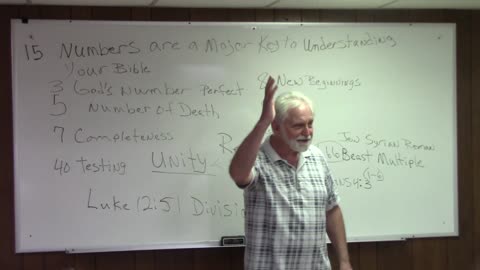 15 Numbers are a Major Key to Understanding
Your Bible
3 God's Number Perfect 8 New Beginnings
5 Number of Death
7 Completeness
Jew Syrian Roman
40 Testing Unity Beast Multiple
Luke 12:51 Division